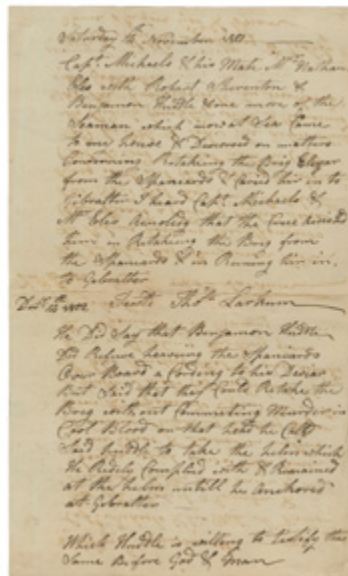 Saturday th November 1801
Capt Michaels & his Mate Mr Nathan
Eles with Robert Steventon &
Benjamon Huddle & one more of the
Seaman which now at Sea Came
to one house & Discorsed on matters
Concerning Retakeing the Brig
from the Spaniards & Caried him in to
Gibraltar I heard Capt Michaels &
Mr Eles that the Crue
them in Retakeing the Brig from
the Spaniards & in Running him in
to Gebraltar
1802 Thos Larkum
He Did Say that Benjamon Huddle
Did Refuse heaveing the Spaniards
Over Board a Cording to his Desier
But Said that they Could Retake the
Breg without Commiting Murder in
Cool Blood on that head he
Said huddle to take the helm which
He Redely Complied with & Remained
at the helm untill he anchored
at Gebralter
Which Huddle is willing to testify the
Same Before God & man